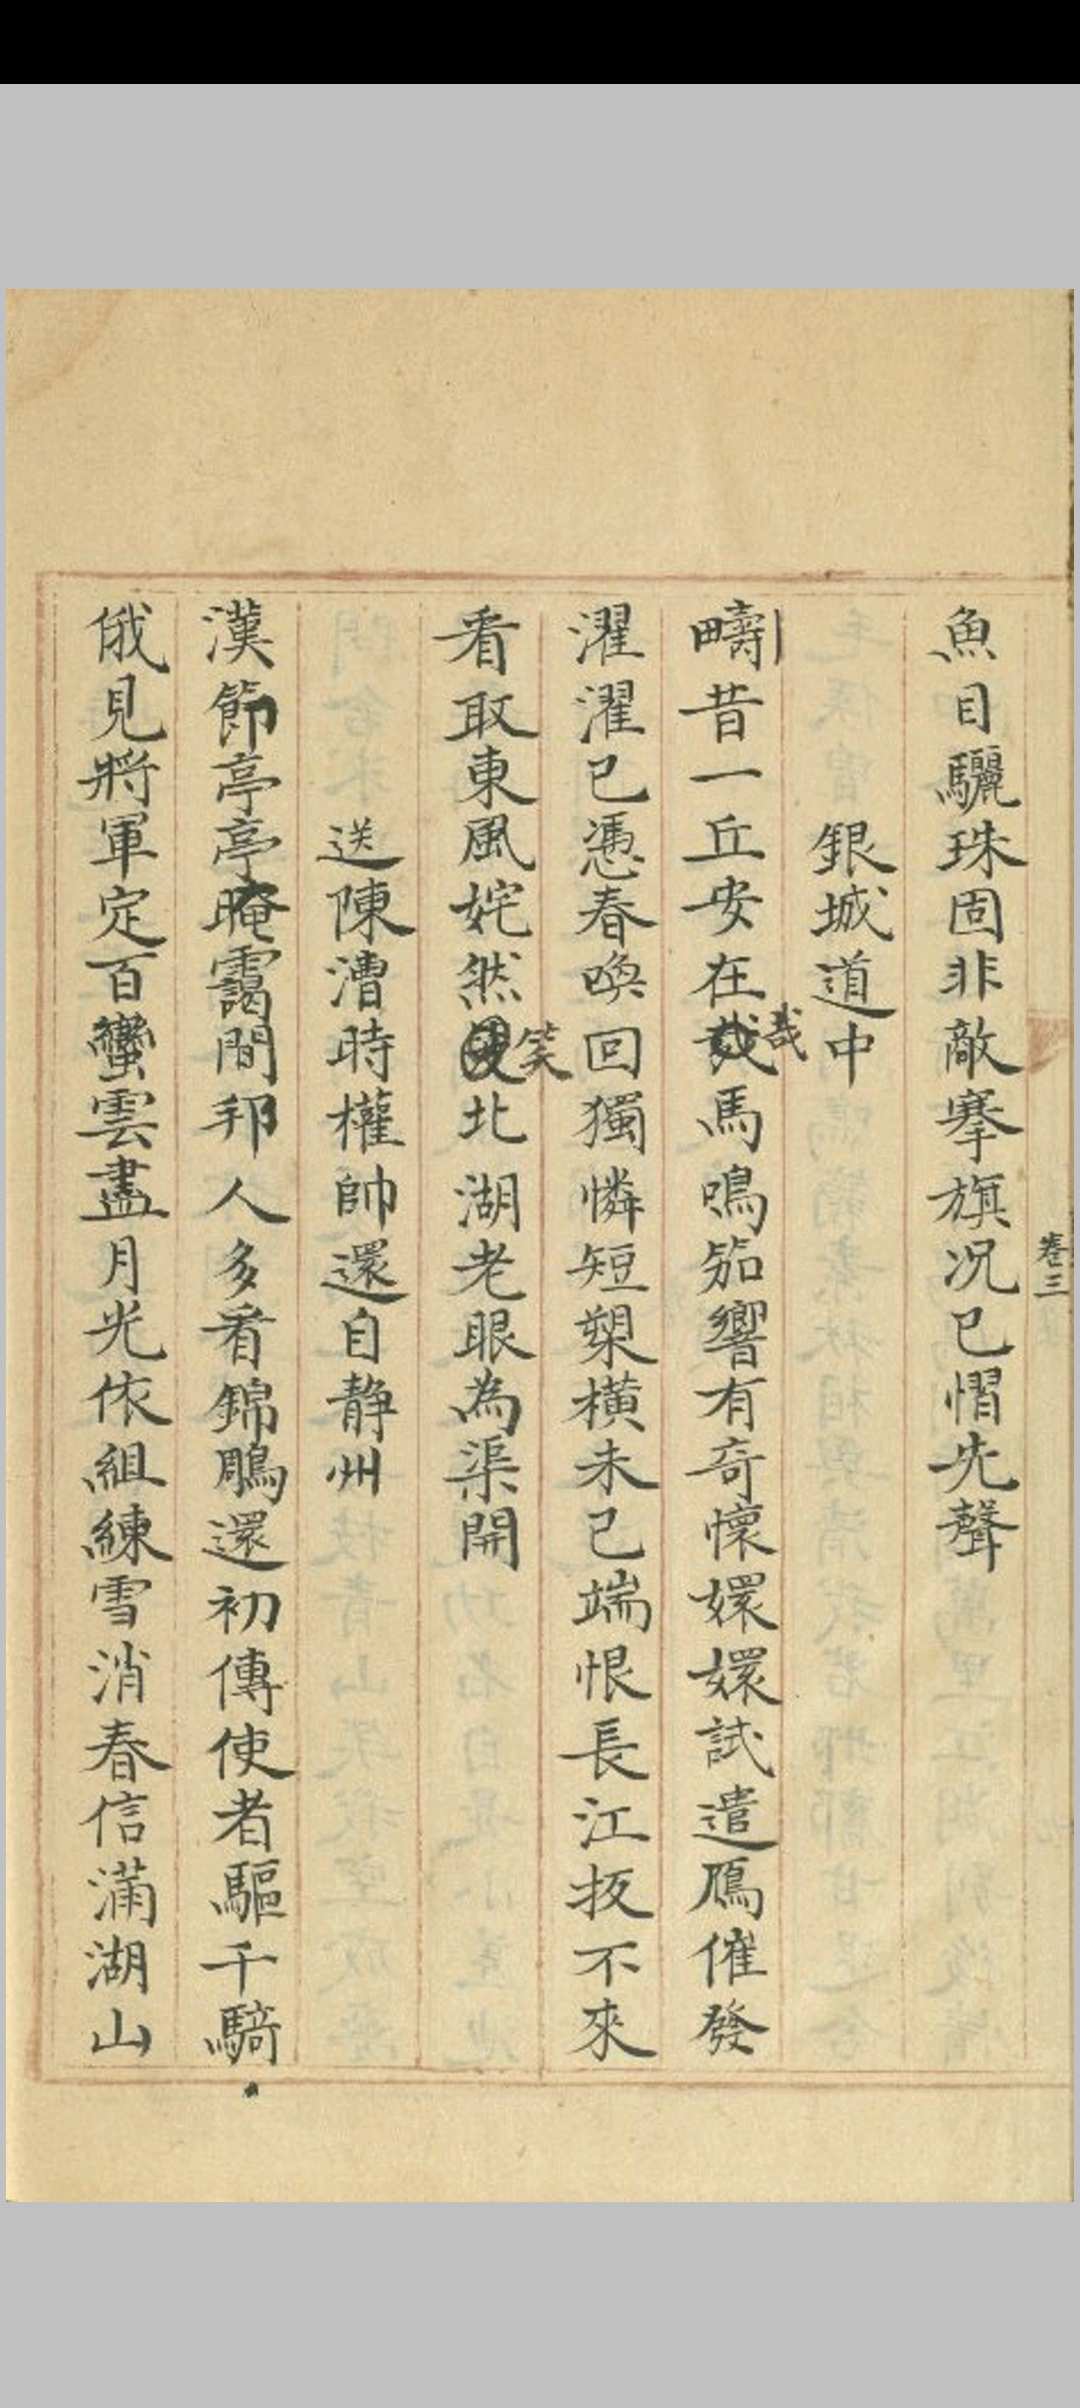 卷三
魚目驪珠固非敵搴旗况已慴先聲
銀城道中
疇昔一丘安在哉馬鳴笳響有奇懷嬛嬛試遣鴈催發
濯濯已憑春喚回獨憐短槊橫未已端恨長江扳不來
看取東風姹然笑北湖老眼為渠開
送陳漕時權帥還自静州
漢節亭亭晻靄間邦人多看錦鵰還初傳使者驅千騎
俄見將軍定百蠻雲盡月光依組練雪消春信滿湖山